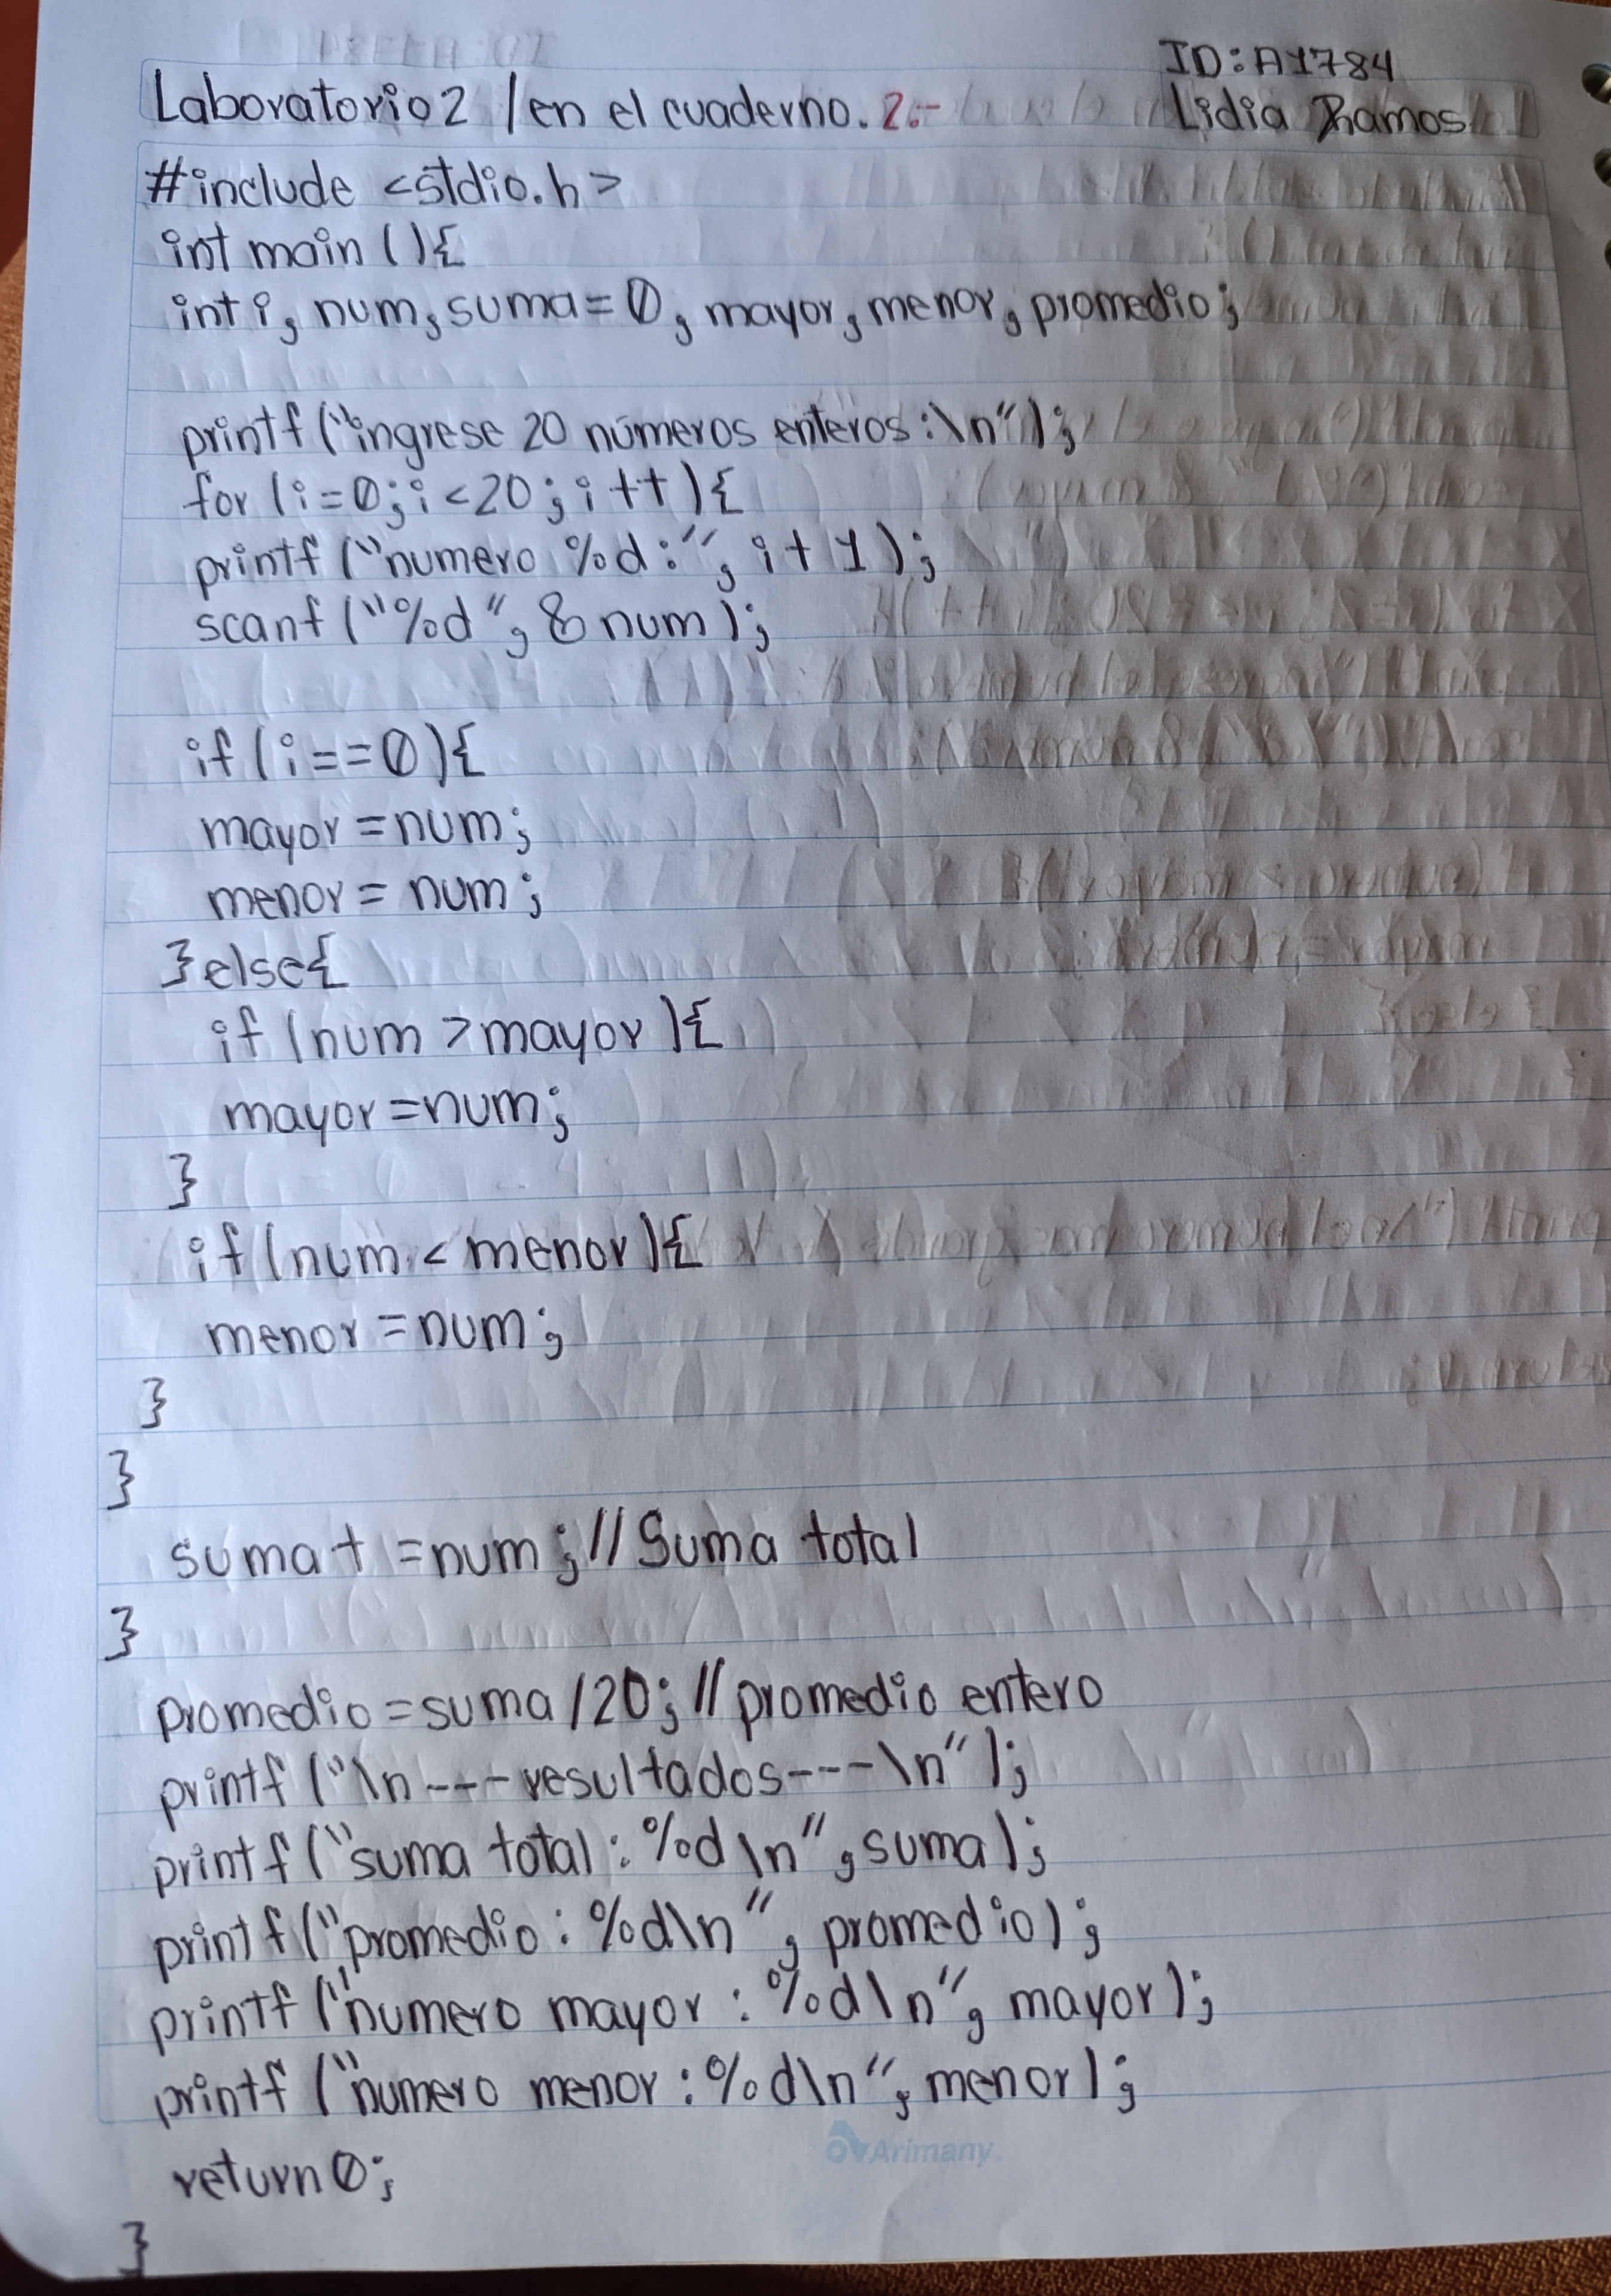 ID: A1784
Laboratorio 2 / en el cuaderno. 2.-
Lidia Ramos
#include <stdio.h>
int main (){
int i, num, suma=0, mayor, menor, promedio;
printf ("ingrese 20 números enteros :\n");
for (i=0; i<20; i++){
printf ("numero %d:", i+1);
scanf ("%d", & num);
if (i==0){
mayor = num;
menor = num;
}else{
if (num > mayor){
mayor = num;
}
if (num < menor){
menor = num;
}
}
suma + = num; // Suma total
}
promedio = suma /20; // promedio entero
printf ("\n --- resultados---\n");
printf ("suma total: %d\n", suma);
printf ("promedio: %d\n", promedio);
printf ("numero mayor : %d\n", mayor);
printf ("numero menor : %d\n", menor);
return 0;
}
Arimany.